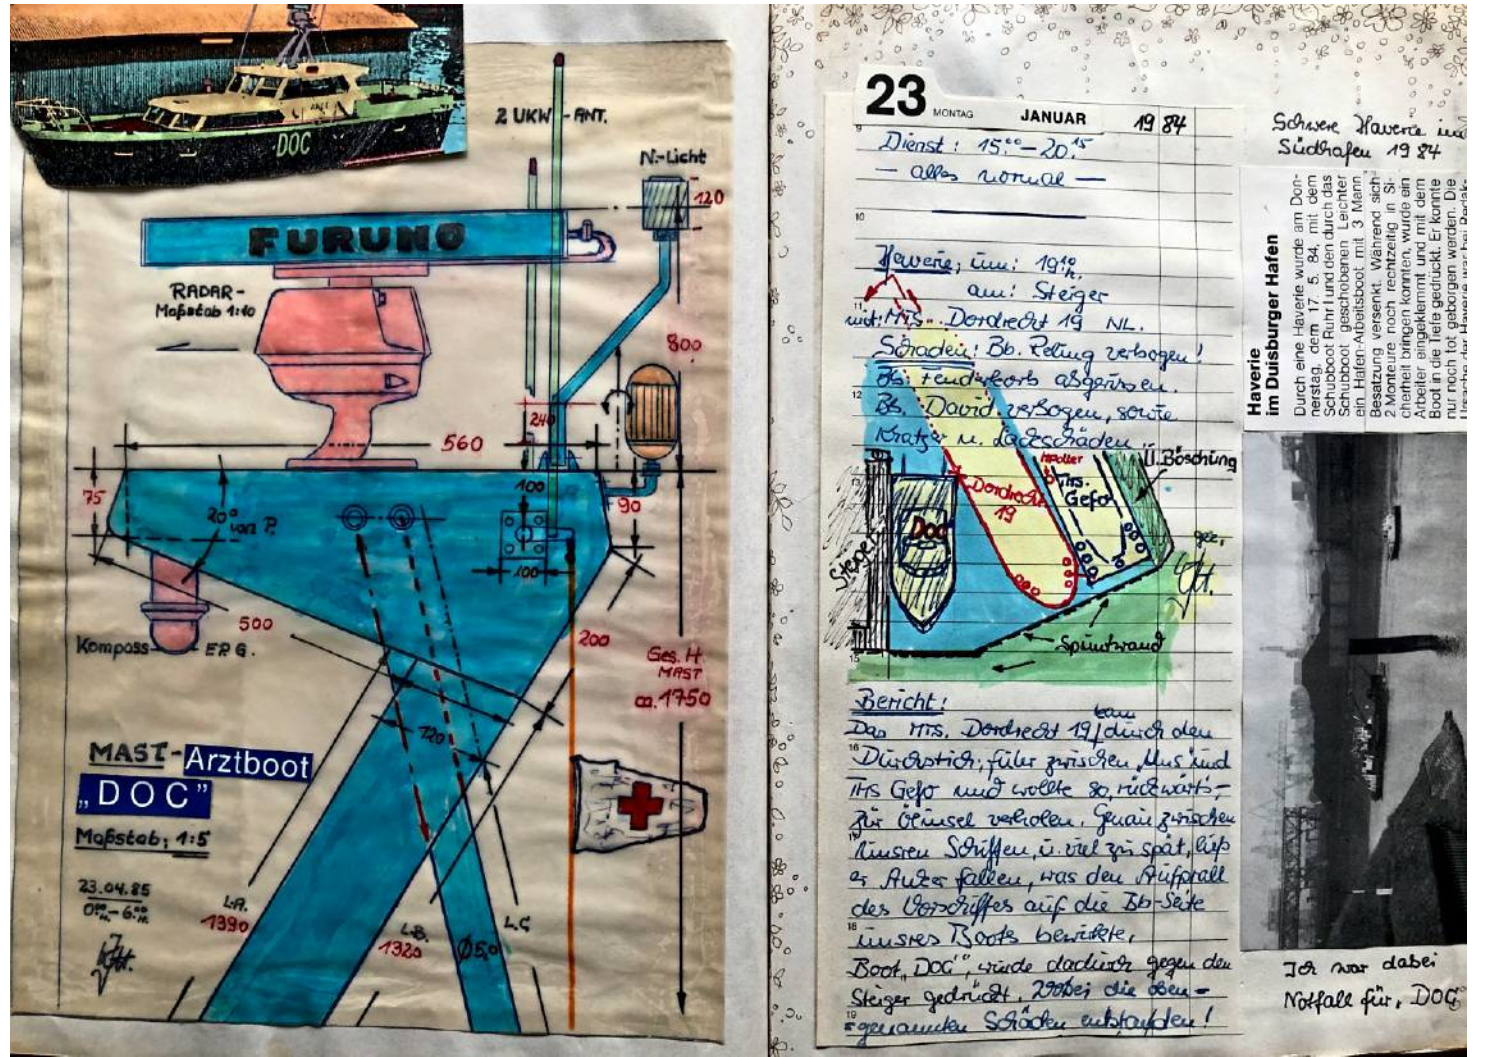 DOC
2 UKW-ANT.
N.-Licht
120
FURUNO
RADAR-
Maßstab 1:10
800
240
560
75
100
90
20°
von P.
100
500
200
Kompass
ERG.
Ges. H.
MAST
ca. 1750
120
MAST-Arztboot
„DOC”
Maßstab: 1:5
23.04.85
0.00-6.00
L.A.
1390
L.B.
1320
L.C
Ø50
23
MONTAG
JANUAR
1984
9
Dienst: 15.00-20.15
- alles normal -
10
Haverie, um: 19.10
am: Steiger
11
mit: Mts. Dordrecht 19 NL.
Schaden: Bb. Reling verbogen!
Bb. Fenderkorb abgerissen.
12
Bb. David verbogen, sowie
Kratzer u. Lackschäden
Poller
Ü. Böschung
TMS.
Gefo
Dordrecht
19
DOC
Steiger
gez.
Spuntwand
15
Bericht:
Das Mts. Dordrecht 19 kam durch den
16
Durchstich, fuhr zwischen uns und
TMS Gefo und wollte so, rückwärts-
zur Ölinsel verholen. Genau zwischen
unsren Schiffen, u. viel zu spät, ließ
er Anker fallen, was den Aufprall
des Vorschiffes auf die Bb-Seite
18
unsres Boots bewirkte,
Boot „DOC”, wurde dadurch gegen den
Steiger gedrückt. Wobei die oben-
19
genannten Schäden entstanden!
Schwere Haverie im
Südhafen 1984
Haverie
im Duisburger Hafen
Durch eine Haverie wurde am Don-
nerstag, dem 17. 5. 84, mit dem
Schubboot Ruhr I und den durch das
Schubboot geschobenen Leichter
ein Hafen-Arbeitsboot mit 3 Mann
Besatzung versenkt. Während sich
2 Monteure noch rechtzeitig in Si-
cherheit bringen konnten, wurde ein
Arbeiter eingeklemmt und mit dem
Boot in die Tiefe gedrückt. Er konnte
nur noch tot geborgen werden. Die
Ursache der Haverie war bei Redak-
Ich war dabei
Notfall für „DOC”